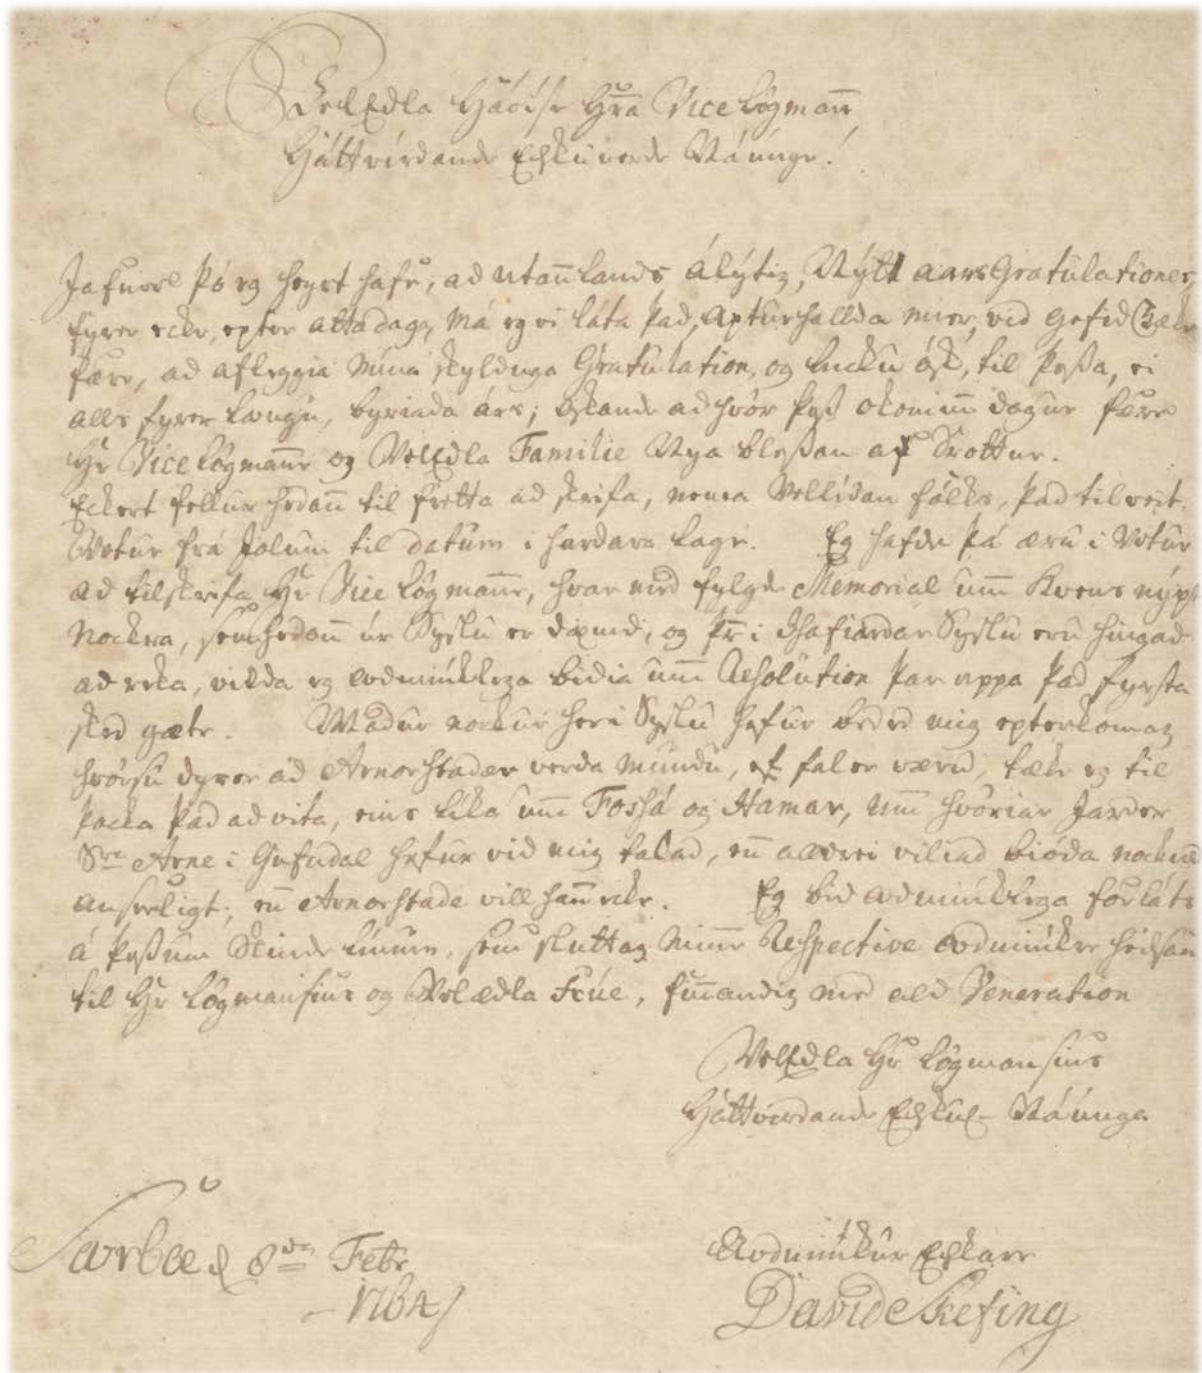 VelEdla Háöfse Hr̄a Vice Løgmann,
Háttvirdande Elskuverde Náunge!
Jafnvel þó eg heyrt hafe, ad utann lands álýtiz, Nýtt aars Gratulationes,
fyrer ecke, epter átta daga, má eg ei láta þad, apturhallda mier, vid gefed Tæke
fære, ad afleggia mína skylduga Gratulation, og lucku ósk, til þessa, ei
alls fyrer laungu, byriada árs; óskande ad hvör þess okominn dagur fære
Hr Vice Løgmanne og VelEdla Familie Nya blessan af Drottne.
Eckert fellur hedann til fretta ad skrifa, nema Vellídan fólks, þad til veit.
Vetur frá Jolum til datum i hardara lage. Eg hafde þá æru i Vetur
ad tilskrifa Hr Vice Løgmanne, hvar med fylgde Memorial um Kvens nýp
Nockra, sem hedann úr Syslu er dæmd, og þr̄ i Isafiardar Syslu eru hingad
ad reka, vilda eg audmiúklega bidia um Resolution þar uppa þad fyrsta
sked gæte. Madur nockur her i Syslu hefur beded mig epterkomaz
hvörsu dyrer ad Arnorstader verda mundu, ef faler være, tæke eg til
þacka þad ad vita, eins líka um Fossá og Hamar, um hvöriar Jarder
Sra Arne i Gufudal hefur vid mig talad, en alldrei viliad bióda nockud
anseeligt; en Arnorstade vill hann ecke. Eg bid audmiúklega forláts
á þessum línum, sem sluttaz minne Respective audmiúkre heilsan
til Hr Løgmansins og Velædla Frúe, finnandiz med all Veneration
VelEdla Hr Løgmansins
Háttvirdande Elskul- Náunga
Skarde d 8da Febr
1764
Audmiúkur Elskare
David Skefing